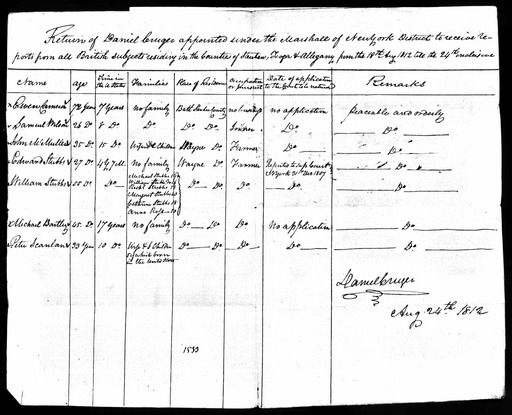 Return of Daniel Cruger appointed under the Marshall of Newyork District to receive re-
ports from all British subjects residing in the Counties of Steuben, Tioga & Allegany from the 18th Aug 1812 till the 24th inclusive
Name age Time in the U States Families Place of Residence occupation or pursuit Date of application to the Courts to be naturalized Remarks
72 Years 7 years no family Bath Steuben County no application peaceable and orderly
Samuel Wilson 26 Do 8 Do Do Do Do Do Do
John McMullen 35 Do 15 Do Wife & Children Wayne Do Farmer Do Do
Edward Stubbs 27 Do no family Wayne Do Farmer Do
William Stubbs 55 Do Do Do Do Do Do Do
Michael Stubbs
William Stubbs
Stubbs
Margaret Stubbs
Stubbs
Anna
Michael Bartley 45 Do 17 years no family Do Do Do No application Do
Peter Scanlan 33 Yrs 10 Do Wife & 6 Children Do Do Do Do Do
of which born
in the United States
Daniel Cruger
Aug 24th 1812
1533